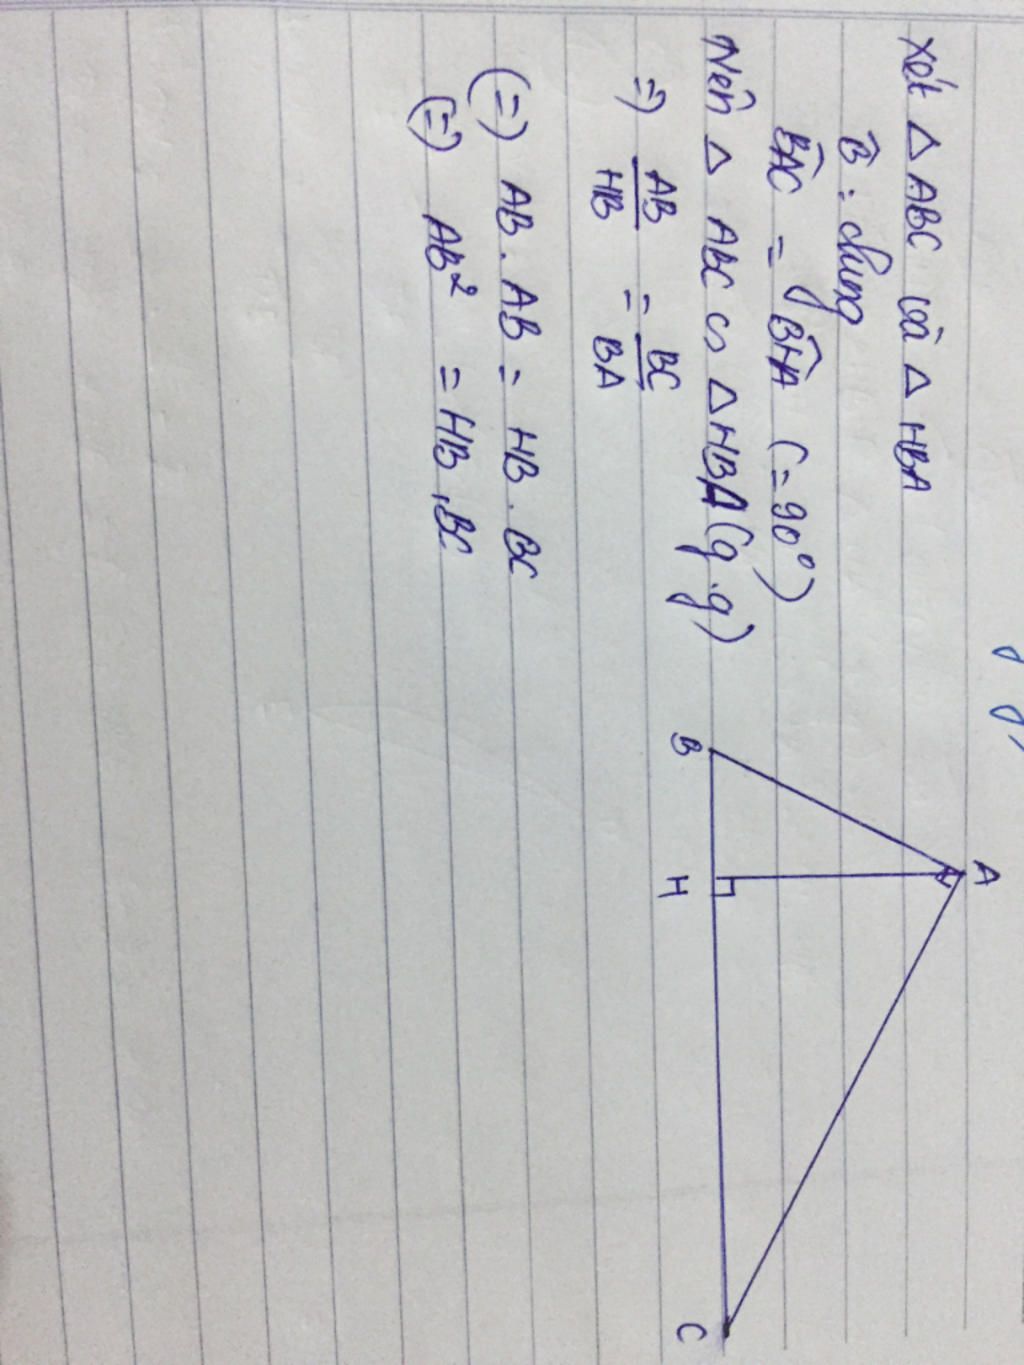 Xét △ ABC và △ HBA
B̂ : chung
BÂC = BĤA (= 90°)
Nên △ ABC ∽ △ HBA (g.g)
⇒ AB/HB = BC/BA
(=) AB . AB = HB . BC
(=) AB² = HB . BC
A
B
H
C